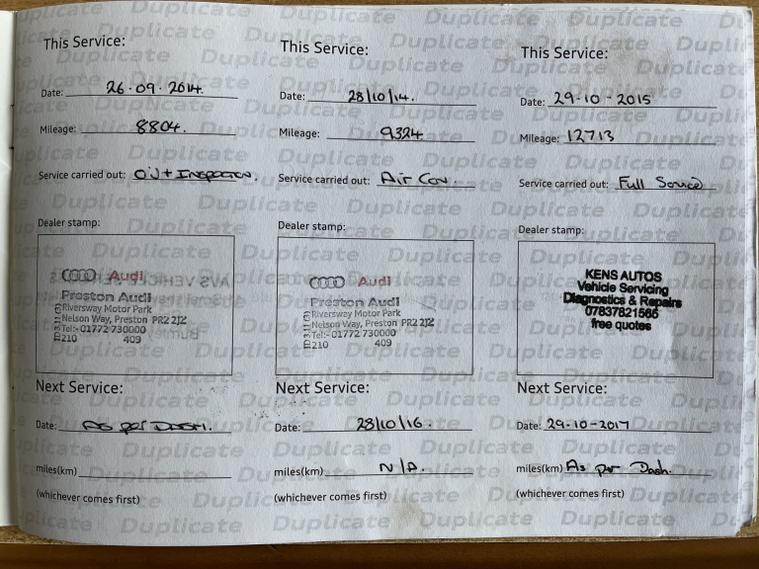 This Service:
Date: 26·09·2014.
Mileage: 8804.
Service carried out: Oil + Inspection.
Dealer stamp:
Audi
Preston Audi
Riversway Motor Park
Nelson Way, Preston PR2 2JZ
Tel:- 01772 730000
210 409
Next Service:
Date: As per Dash.
miles(km)
(whichever comes first)
This Service:
Date: 28/10/14.
Mileage: 9324
Service carried out: Air Con.
Dealer stamp:
Audi
Preston Audi
Riversway Motor Park
Nelson Way, Preston PR2 2JZ
Tel:- 01772 730000
210 409
Next Service:
Date: 28/10/16.
miles(km) N/A.
(whichever comes first)
This Service:
Date: 29-10-2015
Mileage: 12713
Service carried out: Full Service
Dealer stamp:
KENS AUTOS
Vehicle Servicing
Diagnostics & Repairs
07837821565
free quotes
Next Service:
Date: 29-10-2017
miles(km) As per Dash.
(whichever comes first)
Duplicate